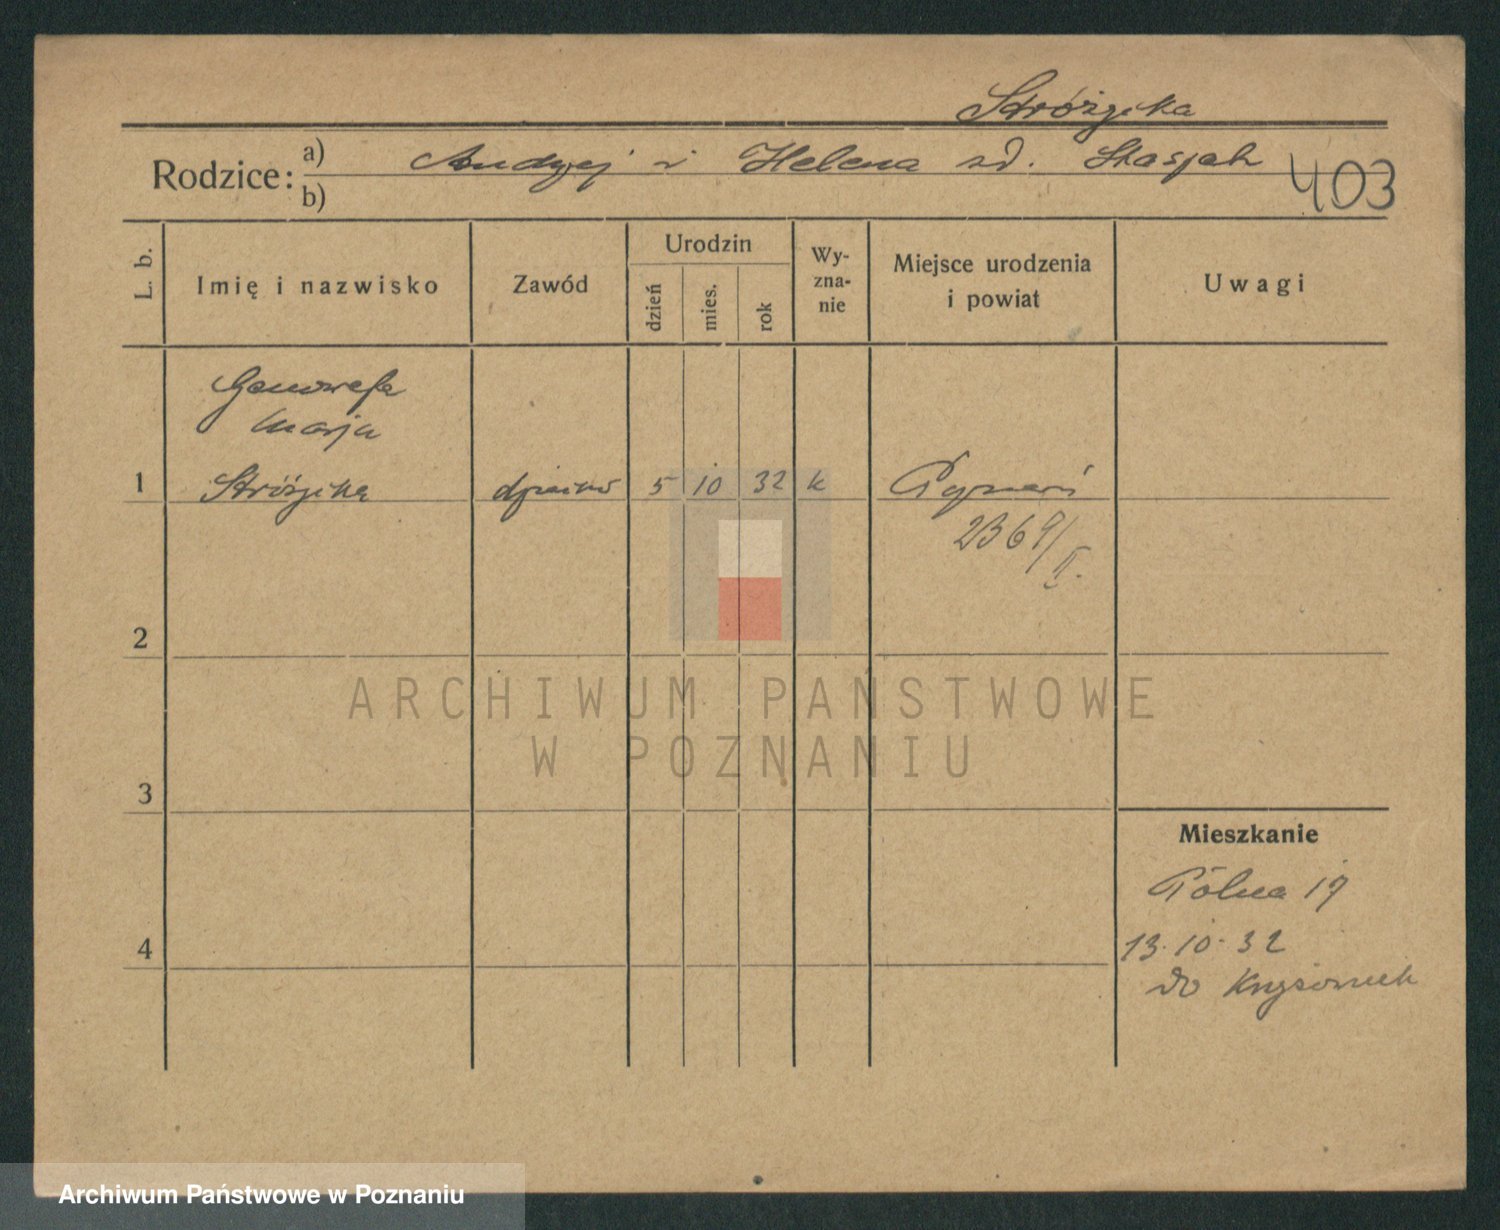 Stróżyka
Rodzice: a) Andrzej i Helena zd. Stasjak
b)
403
L. b.
Imię i nazwisko
Zawód
Urodzin
dzień
mies.
rok
Wy-
zna-
nie
Miejsce urodzenia
i powiat
Uwagi
Genowefa
Marja
1 Stróżyka 5 10 32 k Poznań
2369/II.
2
ARCHIWUM PAŃSTWOWE
W POZNANIU
3
Mieszkanie
Polna 17
4
13.10.32
do
Archiwum Państwowe w Poznaniu